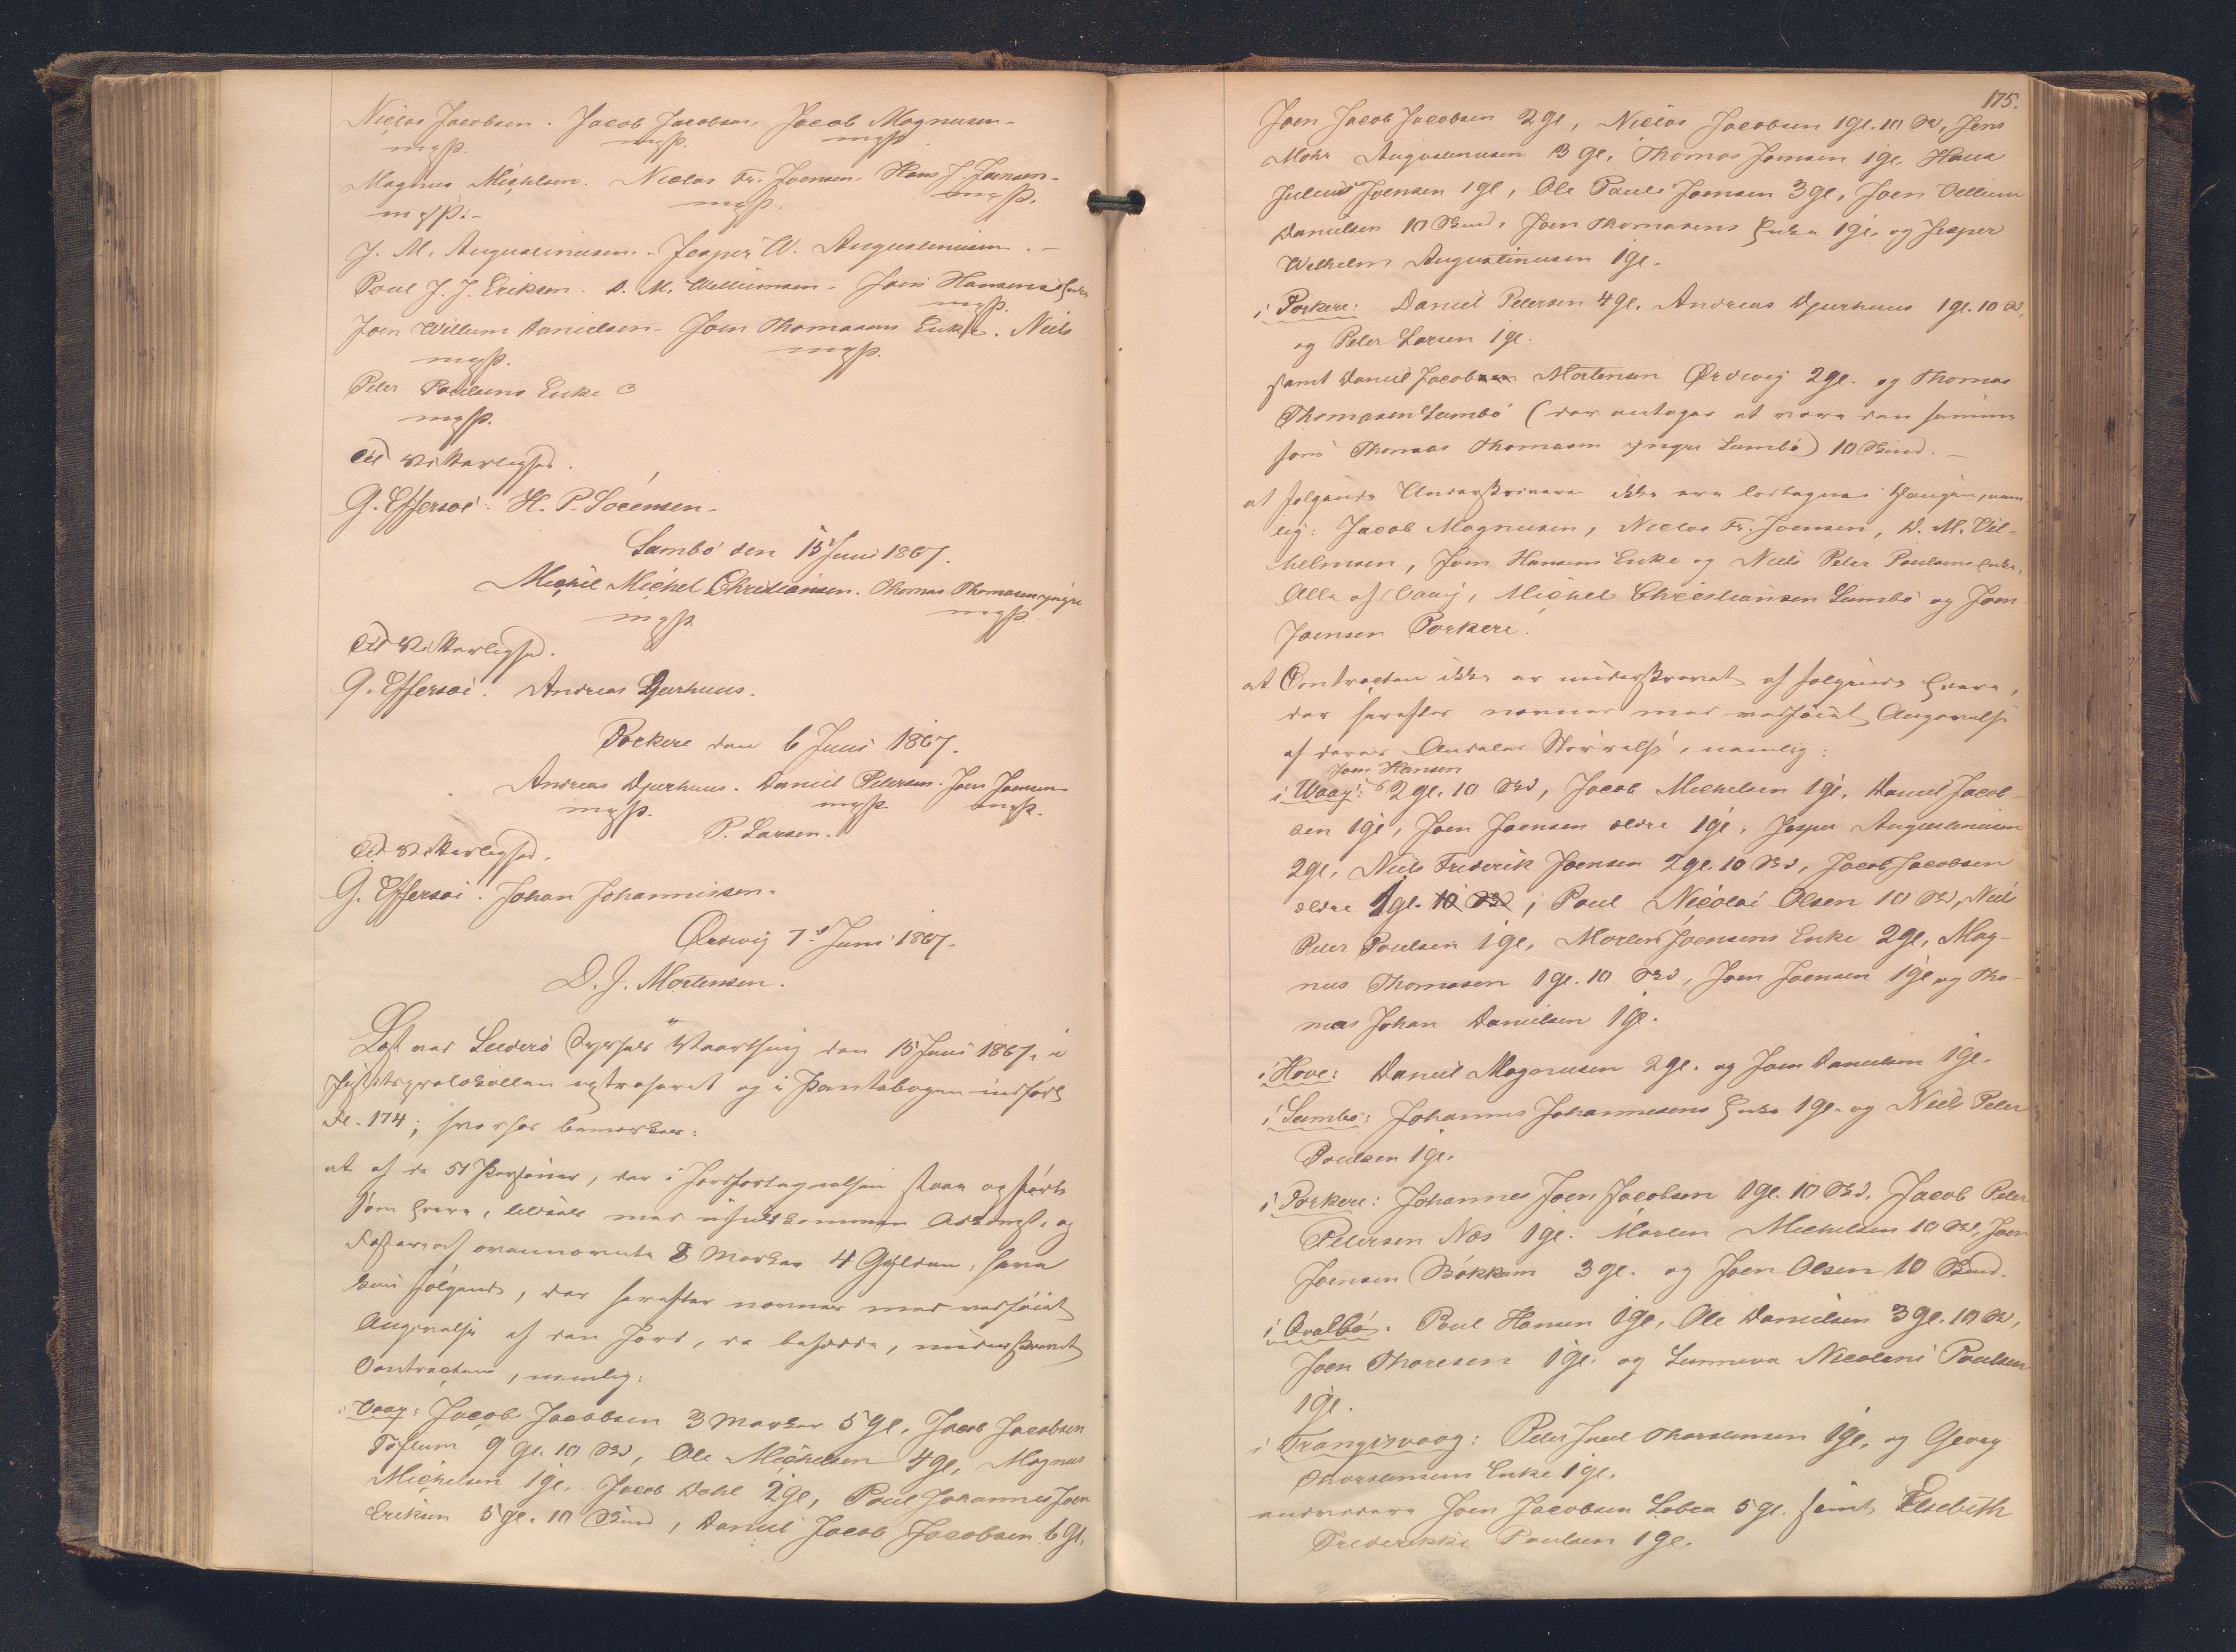 Niclas Jacobsen. Jacob Jacobsen, Jacob Magnusen.
mgP. mgP. mgP
Magnus Michlsen. Niclas Fr. Joensen. Hans J. Joensen.
mgP. mgP. mgP.
J. M. Augustinusen. Jesper W. Augustinusen.
Poul J. J. Eriksen. D. M. Willumsen. Joen Hansens Enke
mgP.
Joen Willum Danielsen. Joen Thomasens Enke. Niels
mgP. mgP.
Peter Poulsens Enke
mgP.
Til Vitterlighed.
G. Effersøe. H. P. Sørensen.
Sumbø den 15 Juni 1867.
Michel Michel Christiansen. Thomas Thomasen yngre
mgP mgP
Til Vitterlighed.
G. Effersøe. Andreas Djurhuus.
Porkere den 6 Juni 1867.
Andreas Djurhuus. Daniel Petersen. Joen Joensen
mgP. mgP. mgP.
P. Larsen.
Til Vitterlighed.
G. Effersøe. Johan Johannissen.
Ørdevig 7d Juni 1867.
D. J. Mortensen.
Læst ved Suderø Syssels Vaarthing den 15 Juni 1867, i
Justitsprotokollen extraheret og i Pantebogen indført
Fl. 174; hvorhos bemærkes:
at af de 51 Personer, der i Jordfortegnelsen staae opført
som Eiere, tildeels med ufuldkommen Adkomst, og
Fæstere af ovennævnte 8 Marker 4 Gylden, have
kun følgende, der herefter nævnes med vedføiet
Angivelse af den Jord, de besidde, underskrevet
Contracten, nemlig:
i Vaag: Jacob Jacobsen 3 Marker 5 Gl. Jacob Jacobsen
Toftum 9 Gl. 10 Skd, Ole Michelsen 4 Gl, Magnus
Michelsen 1 Gl. Jacob Dahl 2 Gl, Poul Johannes Joen
Eriksen 5 Gl. 10 Skind, Daniel Jacob Jacobsen 6 Gl.
175.
Joen Jacob Jacobsen 2 Gl, Niclas Jacobsen 1 Gl. 10 Sk, Jens
Mohr Augustinusen 3 Gl. Thomas Joensen 1 Gl Hans
Julius Joensen 1 Gl, Ole Poul Joensen 3 Gl, Joen Villum
Danielsen 10 Skind, Joen Thomasens Enke 1 Gl, og Jesper
Wilhelm Augustinusen 1 Gl.
i Porkere: Daniel Petersen 4 Gl. Andreas Djurhuus 1 Gl. 10 Sk,
og Peter Larsen 1 Gl.
samt Daniel Jacob Mortensen Ørdevig 2 Gl. og Thomas
Thomasen Sumbø (der antages at være den samme
som Thomas Thomasen yngre Sumbø) 10 Skind.
at følgende Underskrivere ikke ere Lodtagne i Haugen, nem-
lig: Jacob Magnusen, Niclas Fr. Joensen, D. M. Vil-
helmsen, Joen Hansens Enke og Niels Peter Poulsens Enke,
Alle af Vaag, Michel Christiansen Sumbø og Joen
Joensen Porkere.
at Contracten ikke er underskrevet af følgende Eiere,
der herefter nævnes med vedføiet Angivelse
af deres Andeles Størrelse, nemlig:
Joen Hansen
i Waag: 2 Gl. 10 Skd, Jacob Michelsen 1 Gl. Daniel Jacob-
sen 1 Gl, Joen Joensen ældre 1 Gl, Jesper Augustinusen
2 Gl, Niels Frederik Joensen 2 Gl. 10 Skd, Jacob Jacobsen
ældre 1 Gl. 10 Skd, Poul Nicolai Olsen 10 Skd, Niels
Peter Poulsen 1 Gl, Morten Joensens Enke 2 Gl, Mag-
nus Thomasen 1 Gl. 10 Skd, Joen Joensen 1 Gl og Tho-
mas Johan Danielsen 1 Gl.
i Hove: Daniel Magnusen 2 Gl. og Joen Danielsen 1 Gl.
i Sumbø: Johannes Johannesens Enke 1 Gl. og Niels Peter
Poulsen 1 Gl.
i Porkere: Johannes Joen Jacobsen 1 Gl. 10 Skd. Jacob Peter
Petersen Næs 1 Gl. Morten Michelsen 10 Sk, Joen
Joensen Bøkkum 3 Gl. og Joen Olsen 10 Skind.
i Qvalbø. Poul Hansen 1 Gl, Ole Danielsen 3 Gl. 10 Sk,
Joen Thoresen 1 Gl. og Sunneva Nicoleni Poulsen
1 Gl.
i Trangisvaag: Peter Juul Thorstensen 1 Gl, og Georg
Thorstensens Enke 1 Gl.
endvidere Joen Jacobsen Lobra 5 Gl. samt Elsebeth
Frederikke Poulsen 1 Gl.